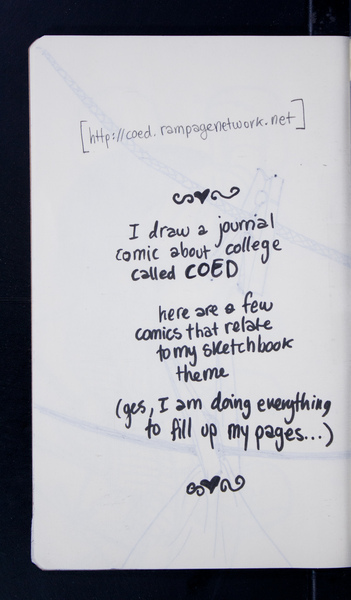 [http://coed.rampagenetwork.net]
I draw a journal
comic about college
called COED
here are a few
comics that relate
to my sketchbook
theme
(yes, I am doing everything
to fill up my pages...)